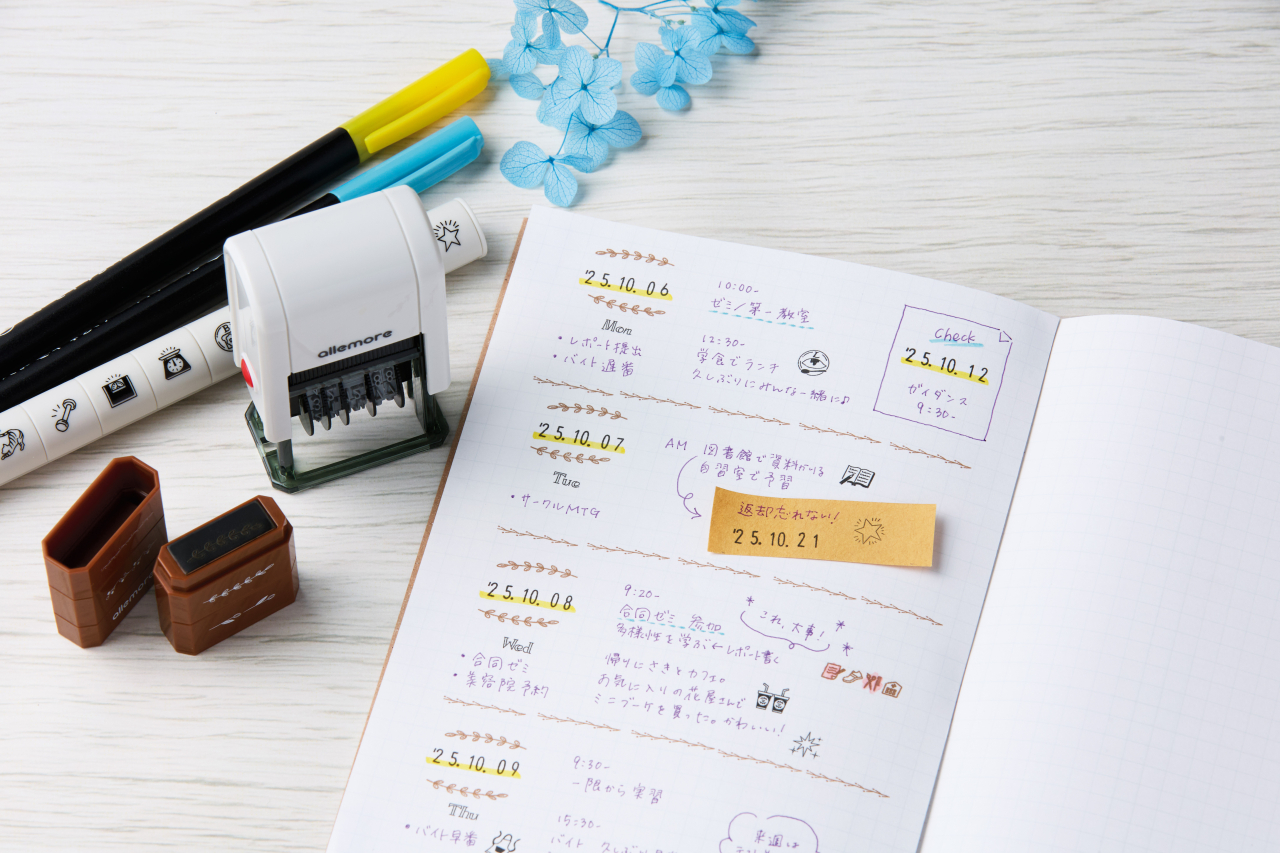 allemore
allemore
'25.10.06
Mon
・レポート提出
・バイト遅番
10:00-
ゼミ/第一教室
12:30-
学食でランチ
久しぶりにみんな一緒に♪
Check
'25.10.12
ガイダンス
9:30-
'25.10.07
Tue
・サークルMTG
AM 図書館で資料かりる
自習室で予習
返却忘れない!
'25.10.21
'25.10.08
Wed
・合同ゼミ
・美容院予約
9:20-
合同ゼミ 参加
多様性を学ぶ←レポート書く
これ、大事!
帰りにさきとカフェ。
お気に入りの花屋さんで
ミニブーケを買った。かわいい!
'25.10.09
Thu
・バイト早番
9:30-
一限から実習
15:30-
バイト
来週は